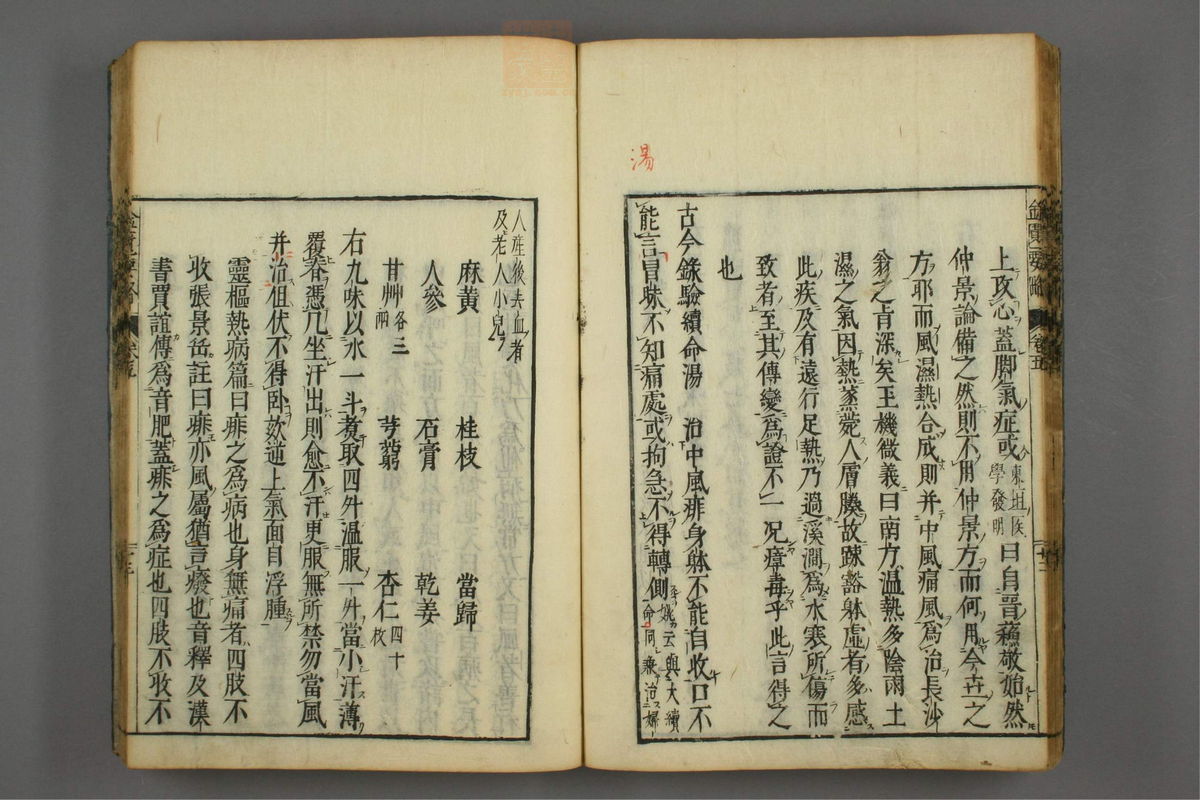 湯
上攻心蓋脚氣症或東垣医學發明曰自晋蘓敬始然
仲景論備之然則不用仲景方而何用今
方耶而風濕熱合成則并中風痛風爲治長沙
翁之肯深矣玉機微義曰南方温熱多陰雨土
濕之氣因熱蒸薨人層腠故踈豁躰虚者多感
此疾及有遠行足熱乃過溪澗爲水寒所傷而
致者至其傳變爲證不一况瘴毒乎此言得之
也
古今錄驗續命湯 治中風痱身躰不能自收口不
能言冒昧不知痛處或拘急不得轉側姚云與大續命同兼治婦
人産後去血者及老人小兒
麻黄 桂枝 當歸
人參 石膏 乾姜
甘艸各三兩 芎藭 杏仁四十枚
右九味以水一斗煑取四升温服一升當小汗薄
覆脊憑几坐汗出則愈不汗更服無所禁勿當風
并治但伏不得卧欬逆上氣面目浮腫
靈樞熱病篇曰痱之爲病也身無痛者四肢不
收張景岳註曰痱亦風屬猶言癈也音釋及漢
書賈誼傳爲音肥蓋痱之爲症也四肢不收不